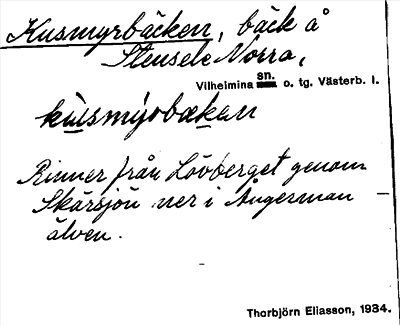 Kusmyrbäcken, bäck å
Stensele Norra,
Vilhelmina sn. o. tg. Västerb. l.
kusmyrbækan
Rinner från Lövberget genom
Skärsjön ner i Ångerman
älven.
Thorbjörn Eliasson, 1934.